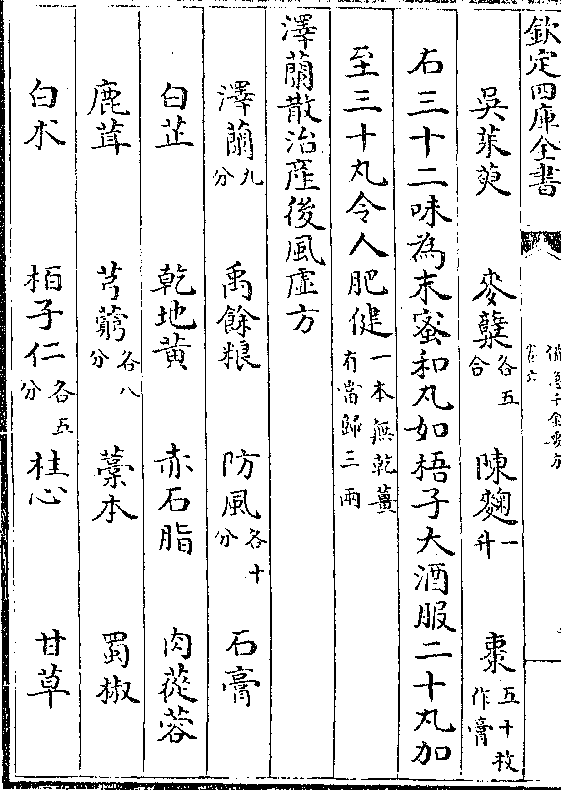 欽定四庫全書
吳茱萸 麥糵各五合 陳麴一升 棗五十枚作膏
右三十二味為末蜜和丸如梧子大酒服二十丸加
至三十丸令人肥健一本無乾薑有當歸三兩
澤蘭散治產後風虛方
澤蘭九分 禹餘粮 防風各十分 石膏
白芷 乾地黃 赤石脂 肉蓯蓉
鹿茸 芎藭各八分 藁本 蜀椒
白朮 柏子仁各五分 桂心 甘草